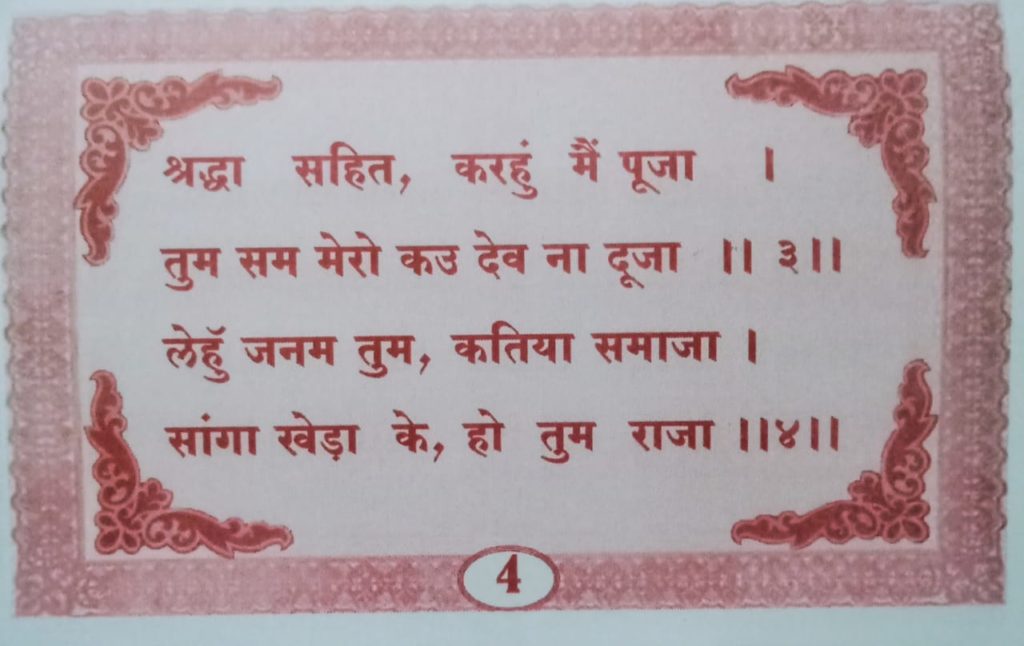 श्रद्धा सहित, करहुं मैं पूजा ।
तुम सम मेरो कउ देव ना दूजा ।। ३।।
लेहुॅ जनम तुम, कतिया समाजा ।
सांगा खेड़ा के, हो तुम राजा ।।४।।
4